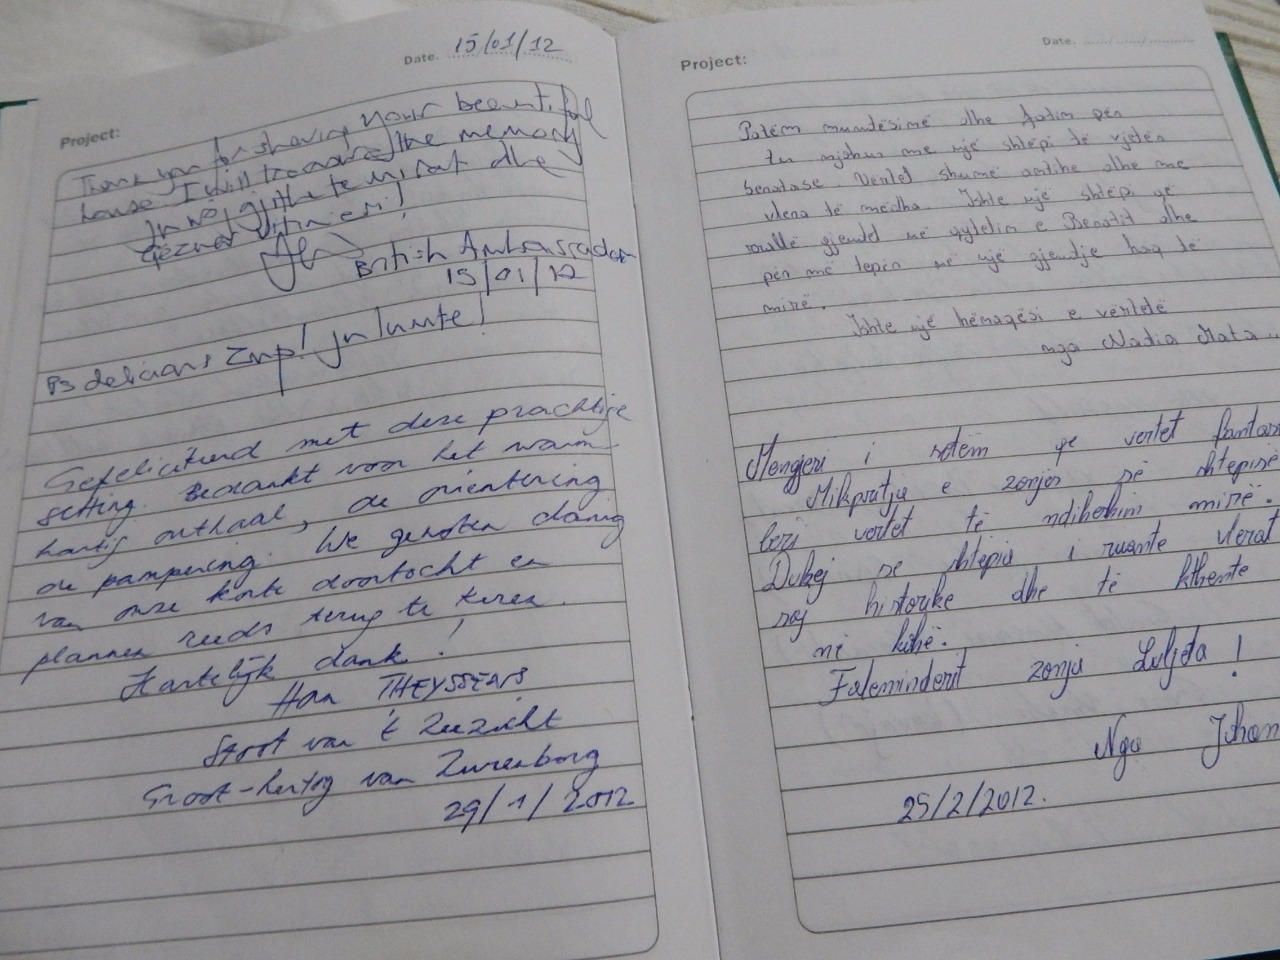 Date. 15/01/12
Project:
Thank you for sharing your beautiful
house I will treasure the memory
Ju
Gëzuar Vitin e ri!
British Ambassador
15/01/12
Ps delicious Zup! Ju lumte!
Gefeliciteerd met deze prachtige
setting. Bedankt voor het warm
hartig onthaal, de orientering
de pampering. We genoten danig
van onze korte doortocht en
plannen reeds terug te keren.
Hartelijk dank!
Han THEYSSENS
Stoot van 't Zeezicht
Groot-hertog van Zurenborg
29/1/2012
Project:
Date.
Patëm mundësinë dhe fatin për
tu njohur me një shtëpi të vjetër
beratase. Vërtet shumë antike dhe me
vlera të mëdha. Ishte një shtëpi që
rrallë gjendet në qytetin e Beratit dhe
për më tepër në një gjendje kaq të
mirë.
Ishte një kënaqësi e vërtetë
nga Nadia Mata..
Mengjesi i sotëm qe vertet
Mikpritja e zonjës së shtepisë
beri vertet të ndihehim mirë.
Dukej se shtepia i ruante vlerat
saj historike dhe të kthente
në kohë.
Faleminderit zonja Luljeta!
Nga
25/2/2012.